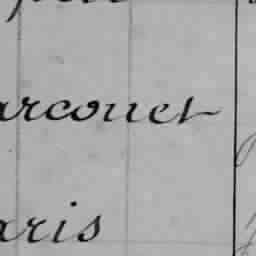 arcouet
aris